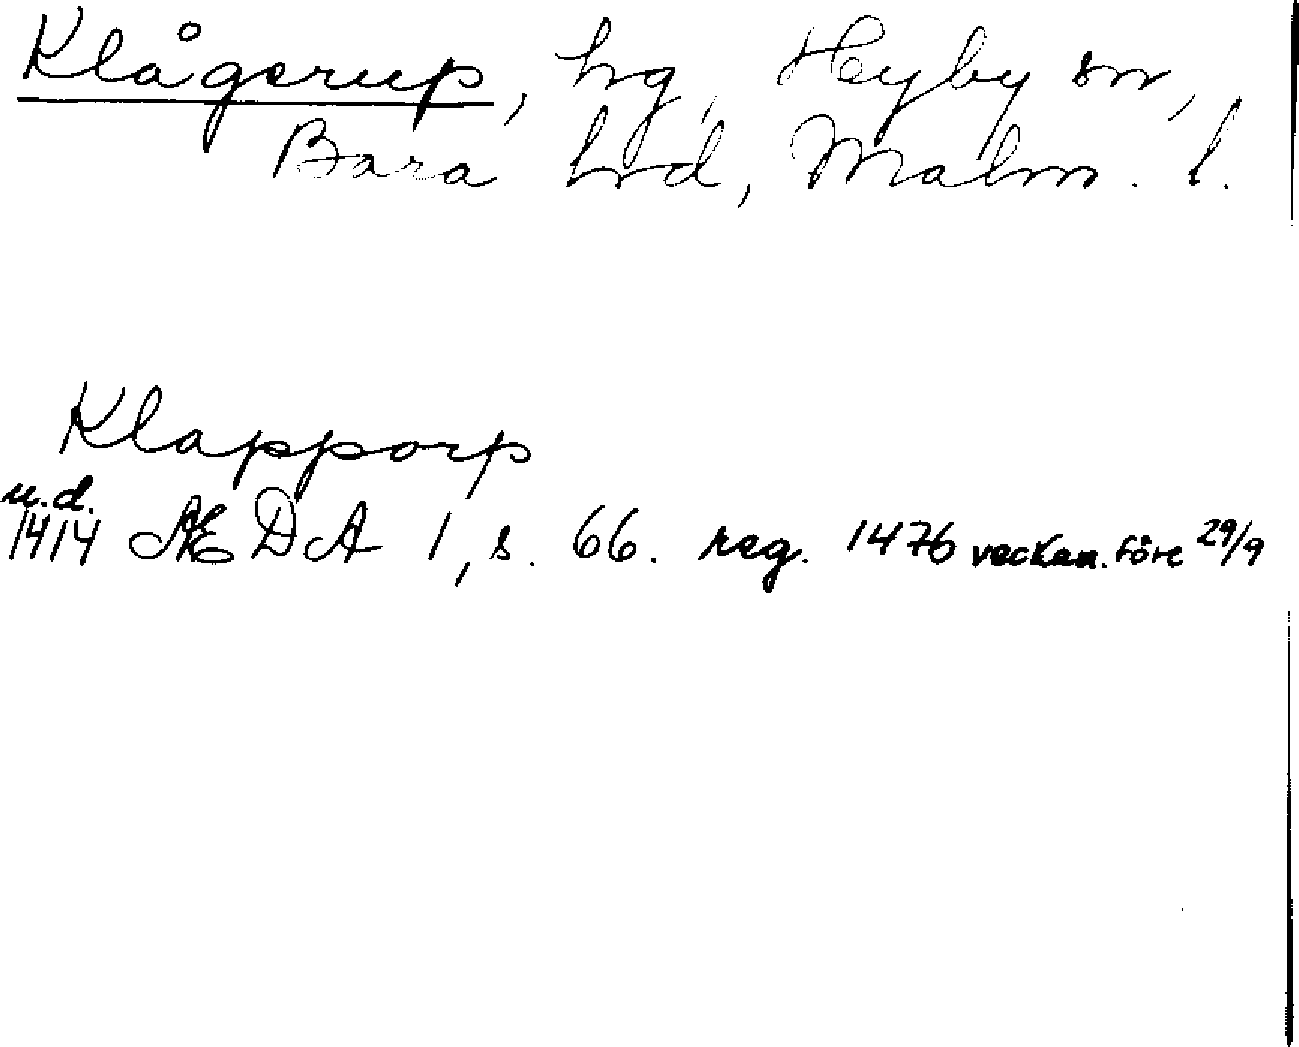 Klågerup, hg, Hyby sn,
Bara hrd, Malm. l.
Klapporp
u.d.
1414 ÆDA 1, s. 66. reg. 1476 veckan. före 29/9